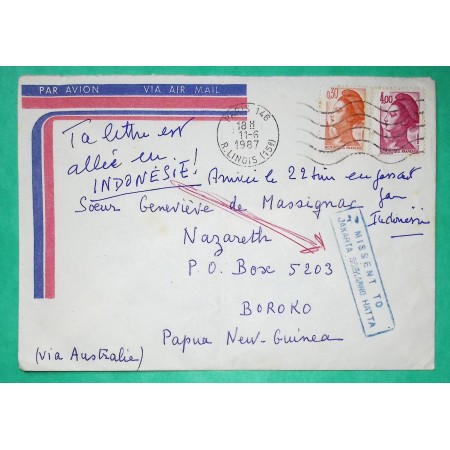 PAR AVION VIA AIR MAIL
0,30 4,00
PARIS 146
18 H
11-6
1987
R. LINOIS (15E)
Ta lettre est
allée en
INDONÉSIE! Arrivée le 22 juin en passant
par
Indonésie
Sœur Geneviève de Massignac
Nazareth
P.O. Box 5203
BOROKO
Papua New-Guinea
(via Australie)
MISSENT TO
JAKARTA SOEKARNO HATTA